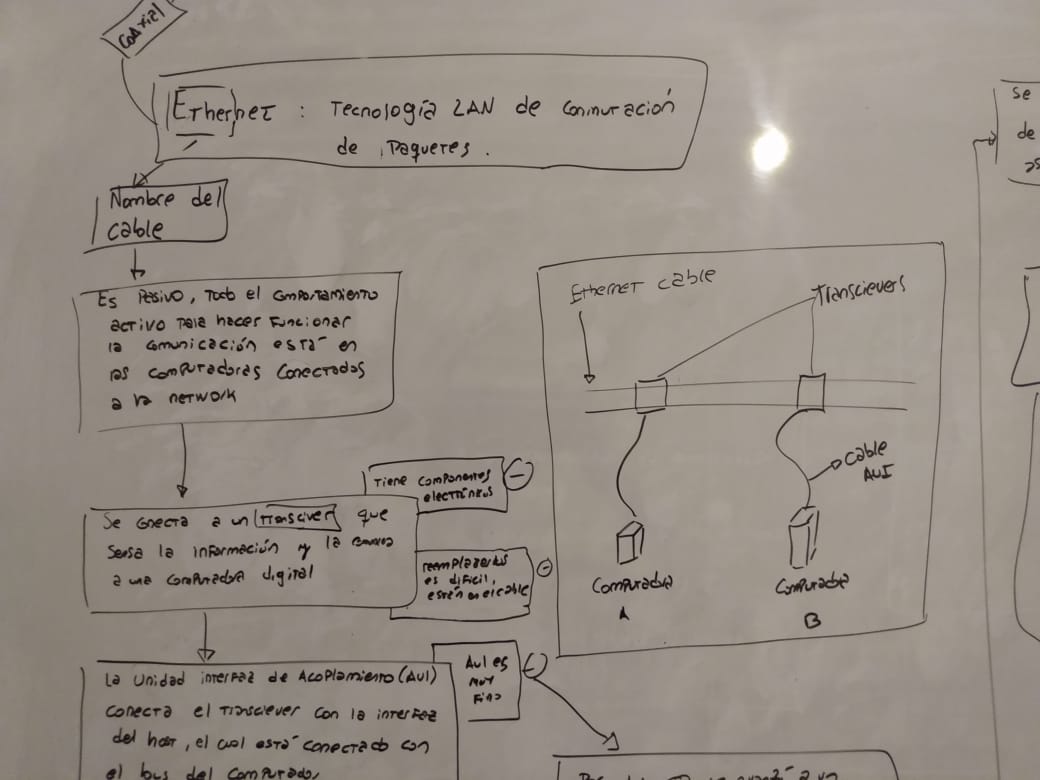 Coaxial
Ethernet : Tecnología LAN de Conmutación
de Paquetes.
Nombre del
cable
Es Pasivo, Todo el comportamiento
activo para hacer funcionar
la comunicación está en
las computadoras conectadas
a la network
Tiene componentes
electrónicos
Se conecta a un transciver que
sensa la información y la
a una computadora digital
reemplazarlos
es dificil,
están en el cable
La Unidad interfaz de Acoplamiento (AUI)
conecta el transciever con la interfaz
del host, el cual está conectado con
el bus del computador
AUI es
muy
fino
Ethernet cable
Transcievers
cable
AUI
Computadora
A
Computadora
B
Se
de